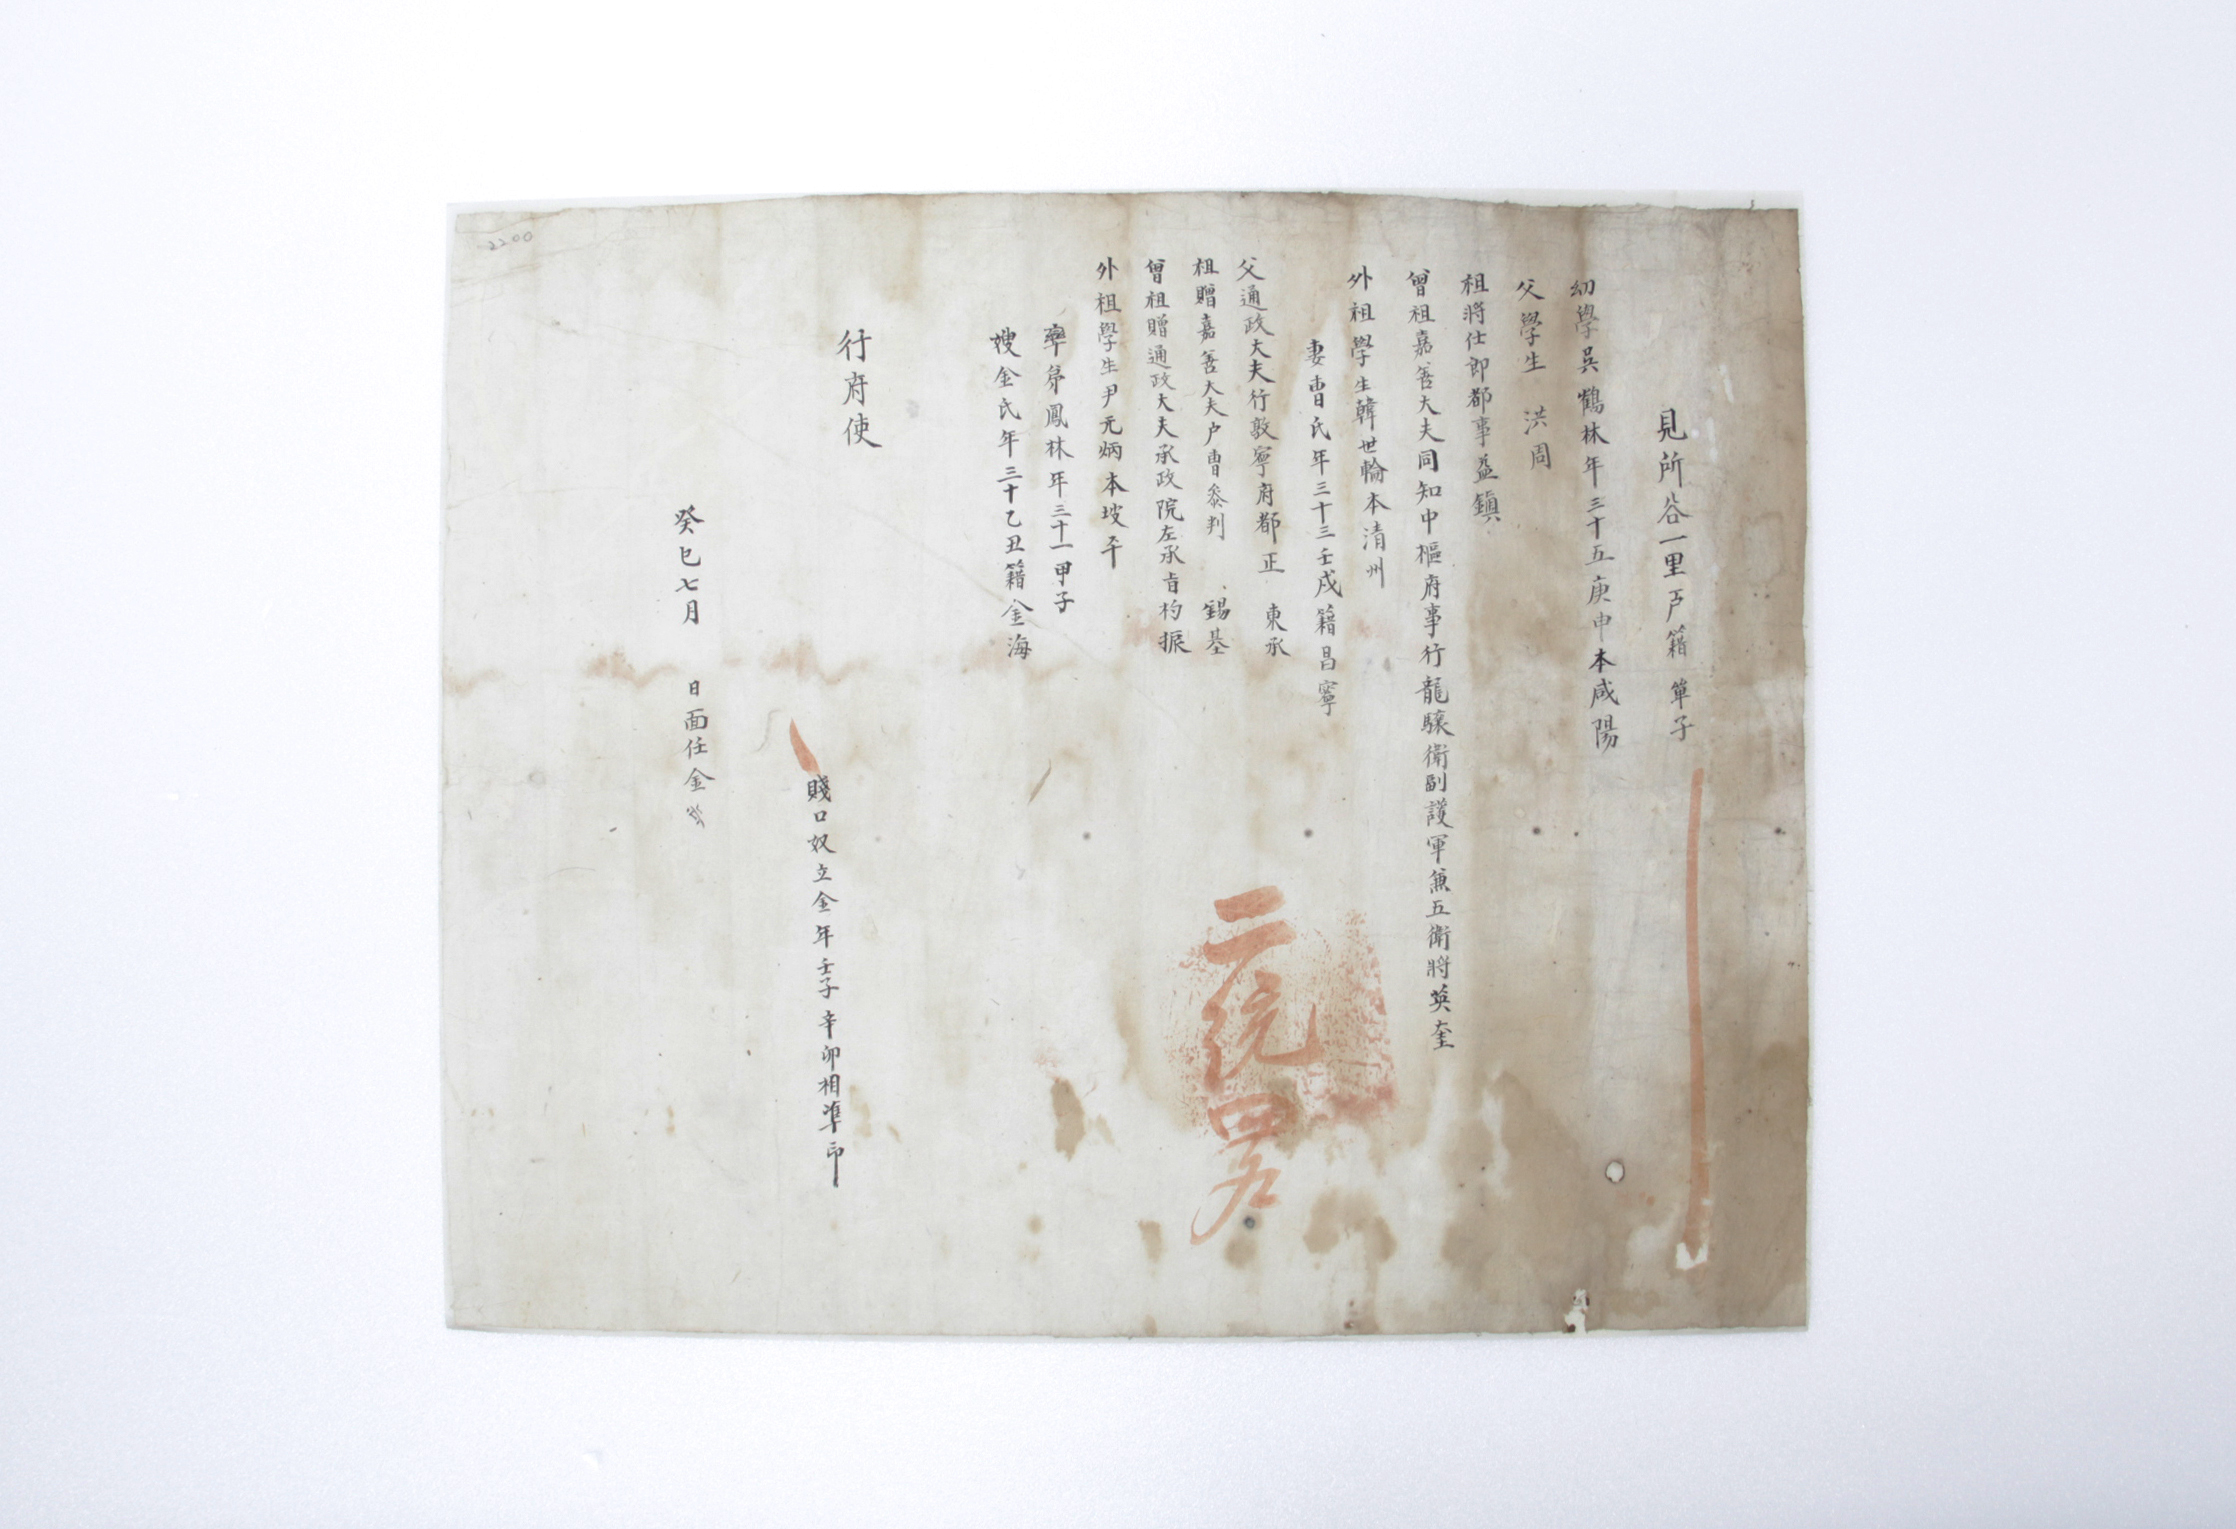 見所谷一里戶籍單子
幼學吳鶴林年三十五庚申本咸陽
父學生 洪周
祖將仕郎都事益鎭
曾祖嘉善大夫同知中樞府事行龍驤衛副護軍兼五衛將英奎
外祖學生韓世輪本清州
妻曺氏年三十三壬戌籍昌寧
父通政大夫行敦寧府都正 東承
祖贈嘉善大夫戶曹參判 錫基
曾祖贈通政大夫承政院左承旨杓振
外祖學生尹元炳本坡平
率弟鳳林年三十一甲子
嫂金氏年三十乙丑籍金海
二統四戶
賤口奴立金年壬子辛卯相準印
行府使
癸巳七月 日面任金
2200